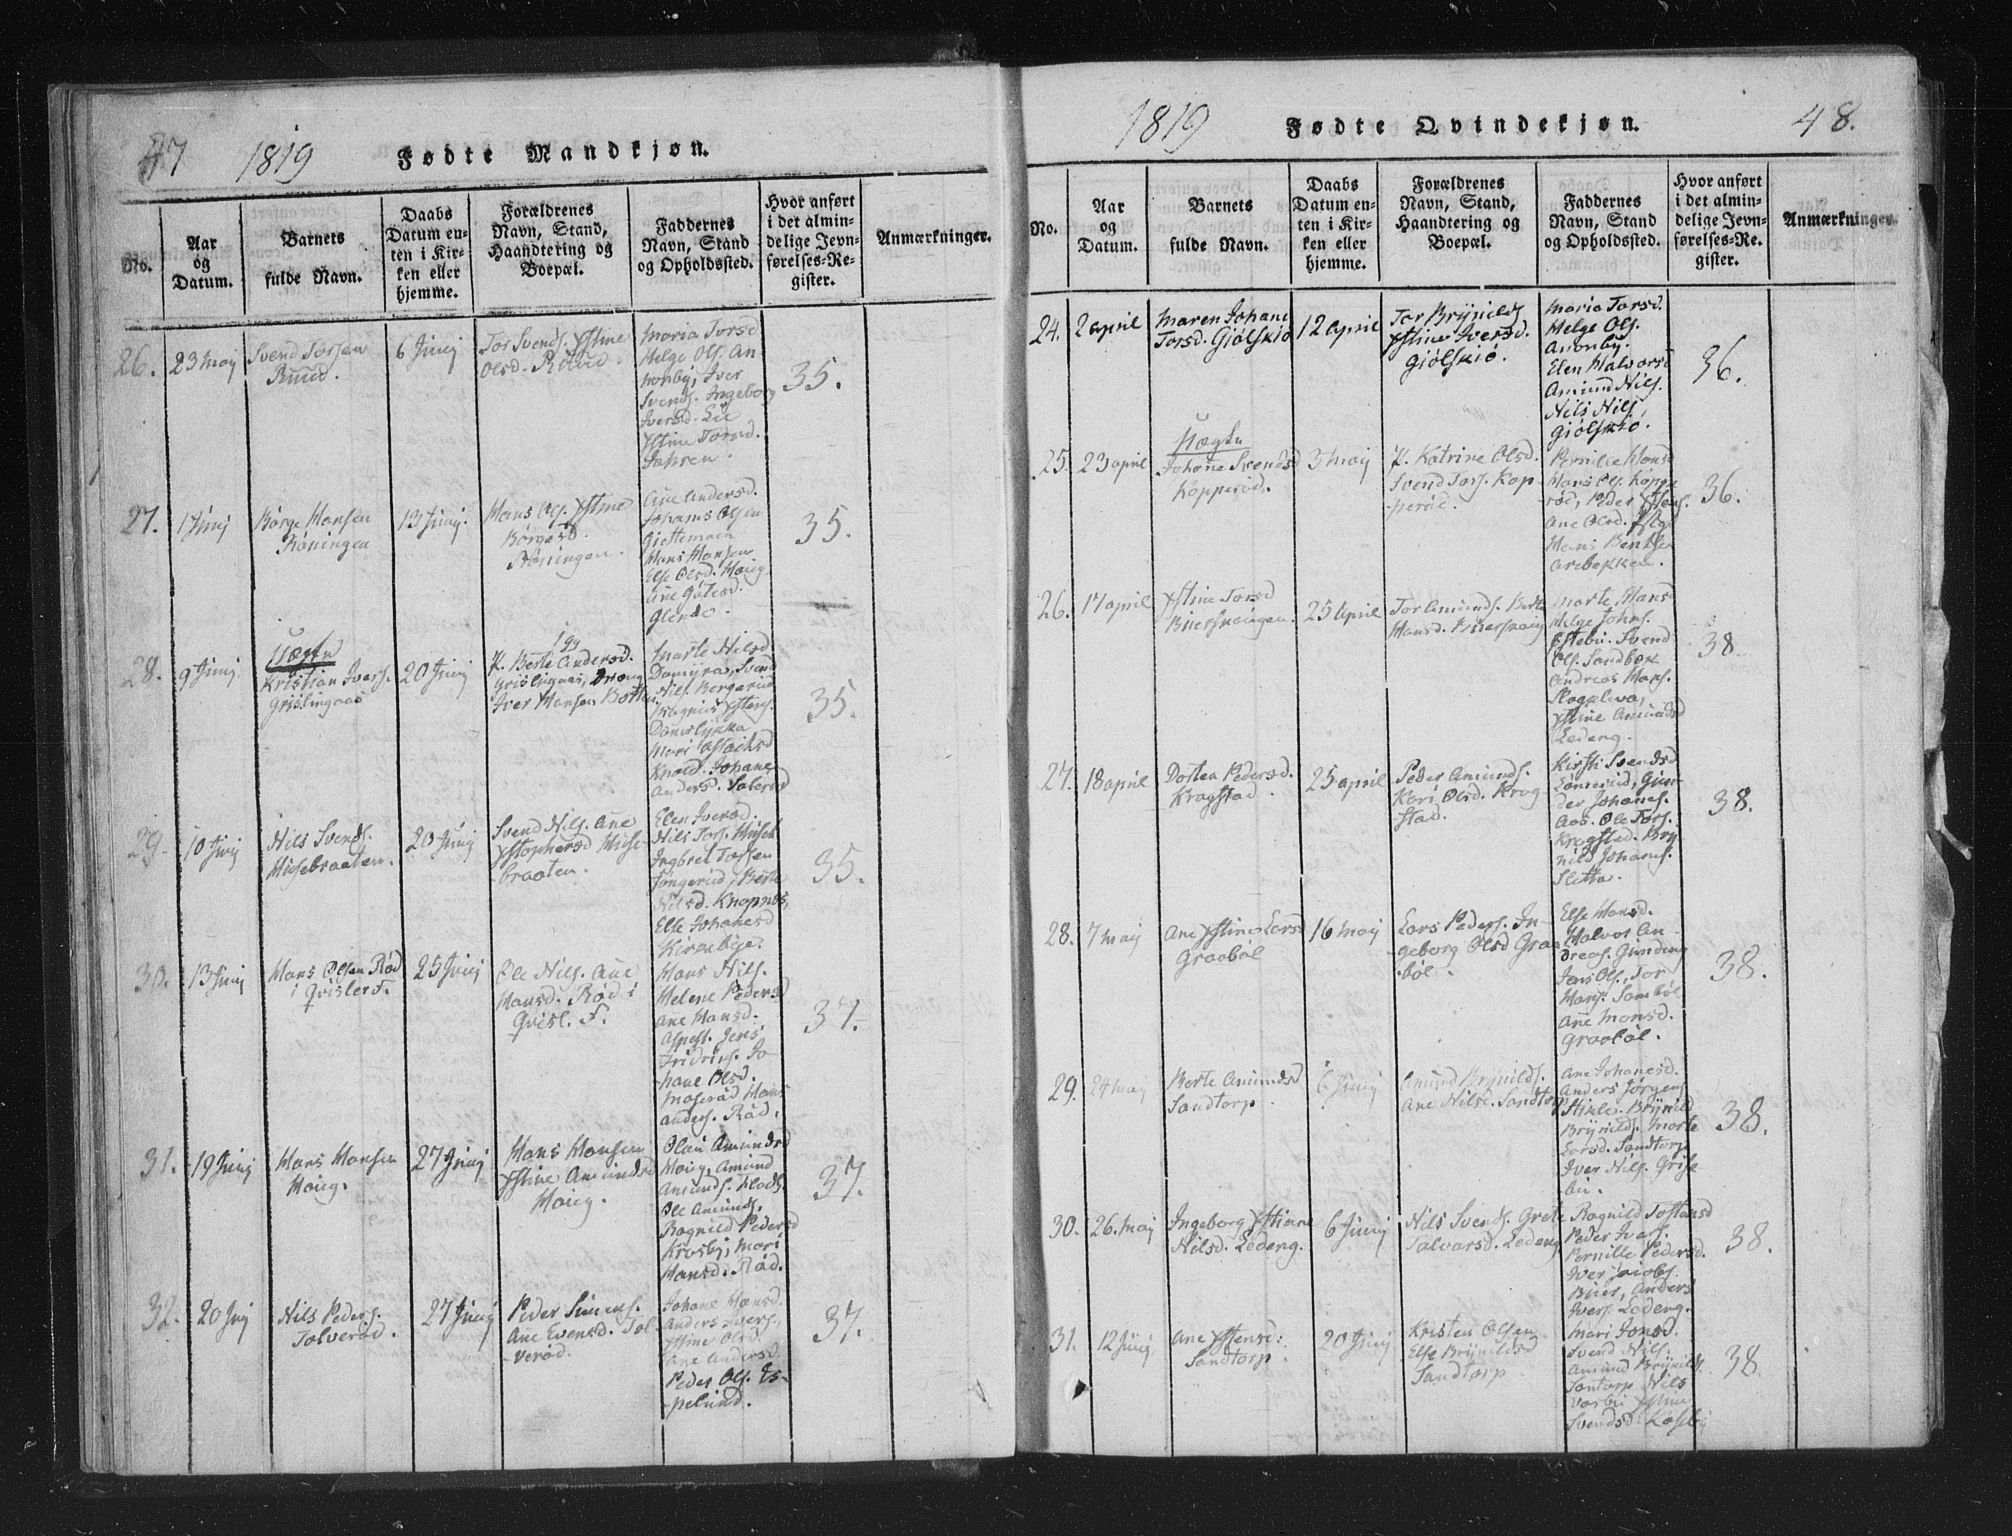 47 1819 Fødte Mandkjøn.
No.
Aar
og
Datum.
Barnets
fulde Navn.
Daabs
Datum en-
ten i Kir-
ken eller
hjemme.
Forældrenes
Navn, Stand,
Haandtering og
Boepæl.
Faddernes
Navn, Stand
og Opholdssted.
Hvor anført
i det almin-
delige Jevn-
førelses-Re-
gister.
Anmærkninger.
26.
23 Maj
Svend Torsen
Ruud.
6 Junj
Tor Svends. Xstine
Olsd. Ruud.
Maria Torsd.
Helge Ols. An
nonbÿ, Iver
Svends. Ingeborg
Iversd. Lie
Xstine Torsd.
Jahren.
35.
27.
1 Junj
Børge Hansen
Röningen
13 Junj.
Hans Ols. Xstine
Börgesd.
Röningen.
Ane Andersd.
Johanis Olsen
Hans Hansen
Else Olsd. Haug
Glende.
35.
28.
9 Junj
Uægte
Kristian Ivers.
Grislingaas
20 Junj
P. Berte Andersd.
Iver Hansen
Marte Nilsd.
Damÿra, Svend
Nils. Bergerud
Magnus Xstens.
Damslÿkka
Andersd.
35.
29.
10 Junj
Nils Svends.
Musebraaten.
20 Junj
Svend Nils. Ane
Xstophersd. Muse-
braaten.
Elen Iversd.
Nils Tors. Museb
Ingbret Torsen
Jöngerud, Berte
Nilsd. Knapnes,
Else Johanesd
Kirkebye.
35.
30.
13 Junj
Hans Olsen Röd
i Qvisler F.
25 Junj
Ole Nils. Ane
Hansd. Röd i
Qvisl. F.
Hans Nils.
Helene Pedersd
Ane Hansd.
Aspest. Jens
Fridrics. Jo-
hane Olsd.
Moseröd Hans
Anders. Röd.
37.
31.
19 Junj
Hans Hansen
Houg.
27 Junj
Hans Hansen
Xstine Amundsd
Houg.
Olau Amundsd
Houg, Amund
Ole Amunds.
Ragnild Pedersd
Krosbÿ, Mari
Hansd. Röd.
37.
32.
20 Junj
Nils Peders.
Tolveröd.
27 Junj
Peder Simens.
Ane Evensd. Tol-
veröd
Johane Hansd.
Anders Ivers.
Xstine Olsd.
Ane Andersd
Peder Ols. Es-
pelund.
37.
1819 Fødte Qvindekjøn. 48.
No.
Aar
og
Datum.
Barnets
fulde Navn.
Daabs
Datum en-
ten i Kir-
ken eller
hjemme.
Forældrenes
Navn, Stand,
Haandtering og
Boepæl.
Faddernes
Navn, Stand
og Opholdssted.
Hvor anført
i det almin-
delige Jevn-
førelses-Re-
gister.
Anmærkninger.
24.
2 april
Maren Johane
Torsd. Giölskiö
12 april
Tor Brÿnilds.
Xstine Iversd.
Giölskiö.
Maria Torsd.
Helge Ols.
Anonbÿ.
Elen Halvorsd
Amund Nils.
Nils Nils.
Giölskiö.
36.
25.
23 april
Uægte
Johane Svendsd
Kopperöd.
3 maj
P. Katrine Olsd.
Svend Tors. Kop-
peröd.
Pernille Hansd
Hans Ols. Koppe
röd, Peder Xstens.
Ane Olsd.
Hans Bentsen
Arebekken.
36.
26.
17 april
Xstine Torsd
25 april
Tor Amunds. Berte
Hansd.
Marte Hansd
Helge Johns.
Svend
Ols. Sandbek
Andreas Hans.
Xstine Amundsd
Ledeng.
38.
27.
18 april
Dortea Pedersd.
Kragstad.
25 april
Peder Amunds.
Kari Olsd. Krag-
stad.
Kirsti Svendsd
Lönnerud, Gun-
der Johanes.
Aas. Ole Tors.
Kragstad. Brÿ
nild Johanes.
Sletta.
38.
28.
7 maj
Ane Xstine Larsd
Graaböl
16 maj
Lars Peders. In-
geborg Olsd Graa
böl.
Else Hansd.
Halvor An-
dreas. Gunneng
Jens Ols. Tor
Hans. Samböl
Ane Monsd.
Graaböl.
38.
29.
24 maj
Berte Amundsd
Sandtorp.
6 Junj
Amund Brÿnilds.
Ane Nilsd. Sandtorp
Ane Johanesd.
Anders Jörgens
Stikle. Brÿnild
Brÿnilds. Marte
Larsd. Sandtorp
Iver Nils. Grise
bu.
38.
30.
26. maj
Ingeborg Xstiane
Nilsd. Ledeng.
6 Junj
Nils Svends. Grete
Talvarsd. Ledeng
Ragnild Tostensd
Peder Ivars.
Pernille Pedersd.
Iver Jacobs.
Buer, Anders
Ivers. Ledeng.
38.
31.
12 Junj
Ane Xstensd:
Sandtorp.
20 Junj
Kristen Olsen
Else Brÿnildsd
Sandtorp
Mari Jonsd.
Svend Nils.
Amund Brÿnilds.
Santorp Nils
Svendsd.
38